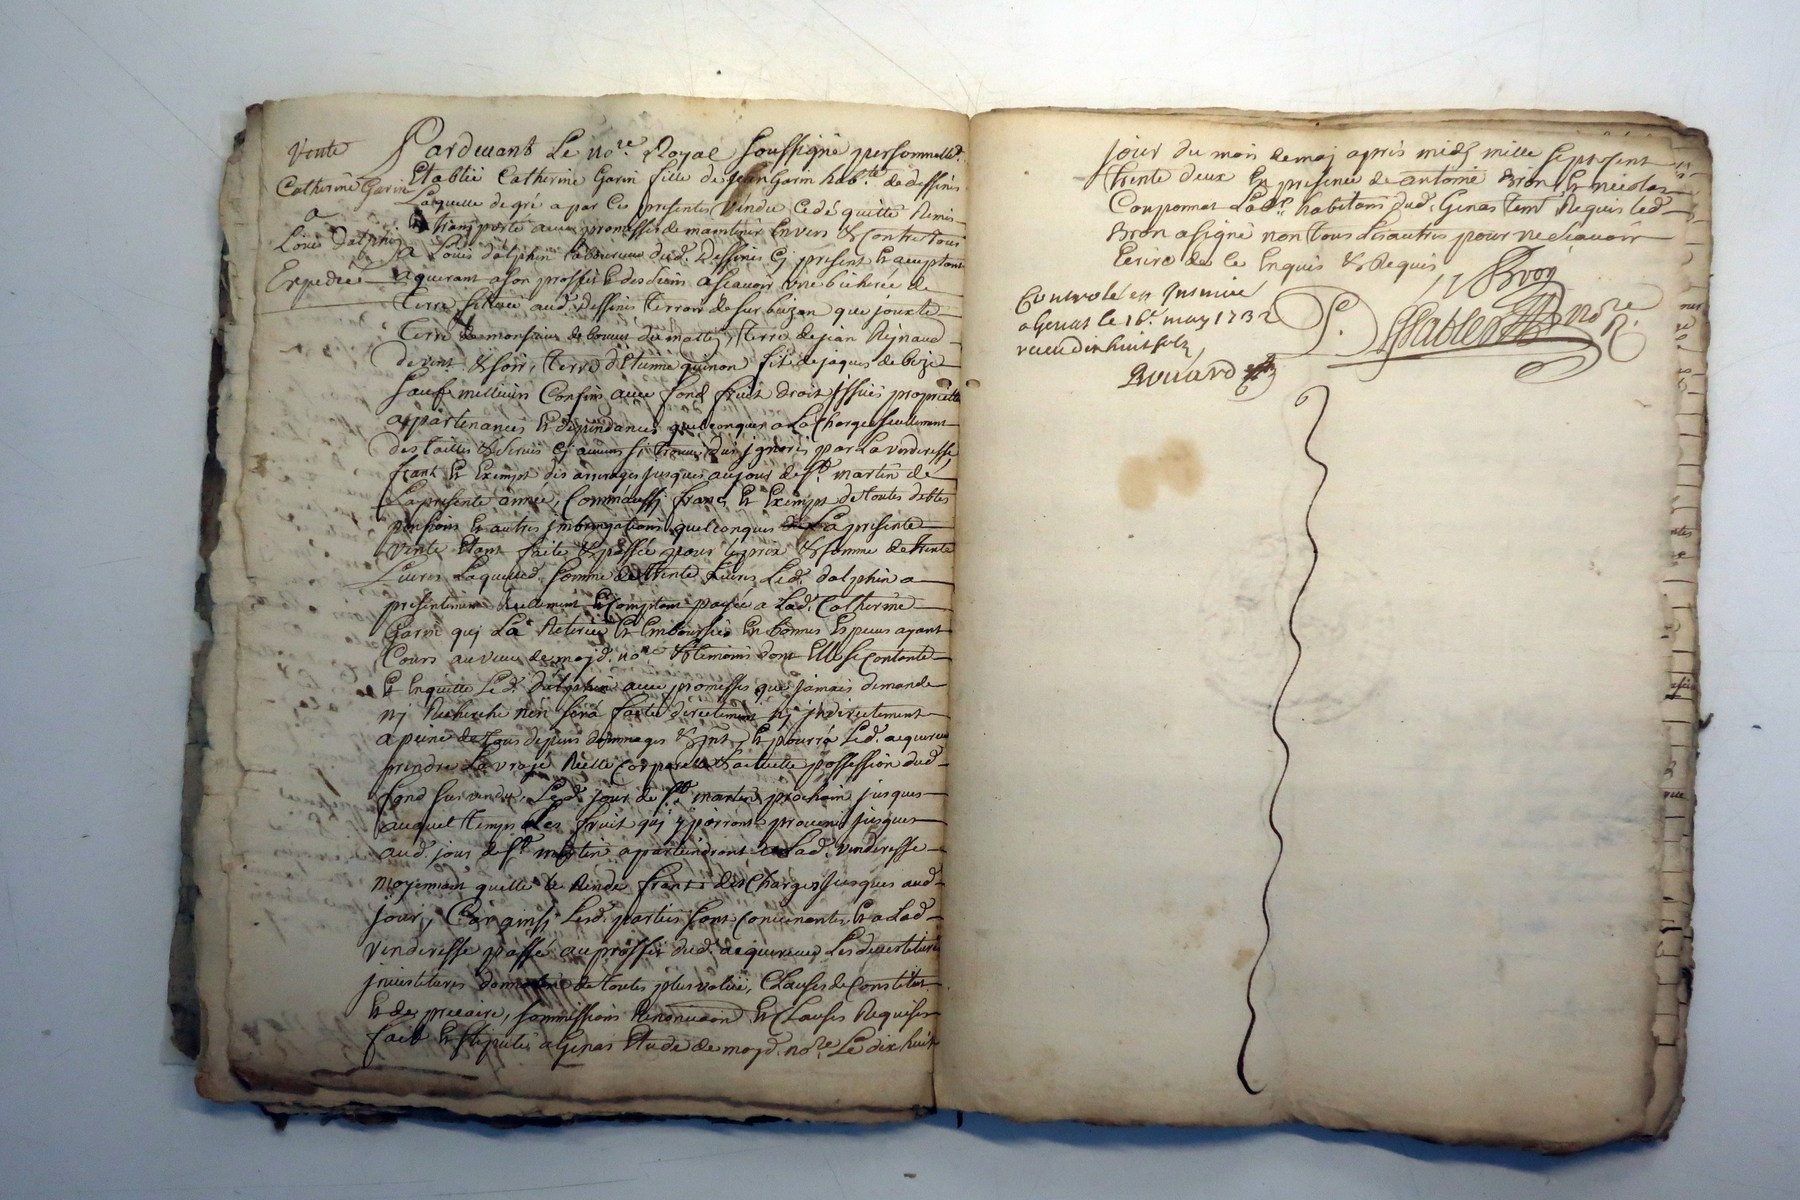 Vente
Catherine Garin
a
Louis dalphin
Expediée
Pardevant Le no.re Royal soussigné personnellem.t
Etablie Catherine Garin fille de Jean Garin hab.te de dessines
Laquelle de gré a par Ces presentes Vendu Cedé quitté Remis
& transporté avec promesse de maintenir Envers & Contre tous
a Louis dalphin laboureur dud. Dessines cy present Et acceptant
aquerant a son proffit & des siens ascavoir Une bicherée de
Terre située aud. dessines terroir de sur buzan que jouxte
Terre de monsieur de du matin, terre de jean Reynaud
de vent & soir, terre d'Etienne quinon fils de jaques de bize
sauf meilleurs Confins avec fond fruit droit Issues proprietés
appartenances Et dependances quelconques a La Charge seullement
des tailles & servis cy aucuns si trouve dus ignorés par La venderesse
franc Et Exempt des arrerages jusques au jour de S.t martin de
La presente année, Comme aussy franc Et Exempt de toutes debtes
pensions Et autres imbrigations quelconques La presente
Vente Etant faite & passée pour le prix & somme de trente
Livres Laquelle d. somme de trente Livres Led. dalphin a
presentement Reellement Et Comptant payée a Lad. Catherine
Garin quj La Retirée Et Emboursée En bonnes Especes ayant
Cours au veu de moyd. no.re & temoins dont Elle se Contente
Et Enquitte Led. dalphin avec promesses que jamais demande
nj Recherche n'en sera faite directement nj jndirectement
a peine de tous depens dommages & Jnt. Et pourra Led. acquereur
prendre La vraye Réelle Corporelle & actuelle possession dud.
fond sus vendu, Led. jour de S.t martin prochain jusques
auquel temps Les fruit quj y pourront provenir jusques
aud. jour de S.t martin apartiendront a Lad. Venderesse
moyennant quelle le Rende franc des Charges jusques aud.
jour, Car ainsj Lesd. parties sont Convenantes, Et a Lad.
Venderesse passé au proffit dud. acquereur Les devestitures
jnvestitures donnation de toutes plus value, Clauses de Constitut
Et de precaire, sommissions Renonciation Et Clauses Requises
fait Et stipulé a Genas Etude de moyd. no.re Le dix huit
jour du mois de maj après midj mille sept cent
trente deux En presence de antoine Bron Et nicolas
Couponnat Lab.rs habitans dud. Genas tem. Requis led.
Bron a signé non tous Les autres pour ne scavoir
Ecrire de ce Enquis & Requis
Bron
Controlé et Jnsinué
a Genas le 18.e may 1732
receu dix huit sols,
Rouard
no.re R.